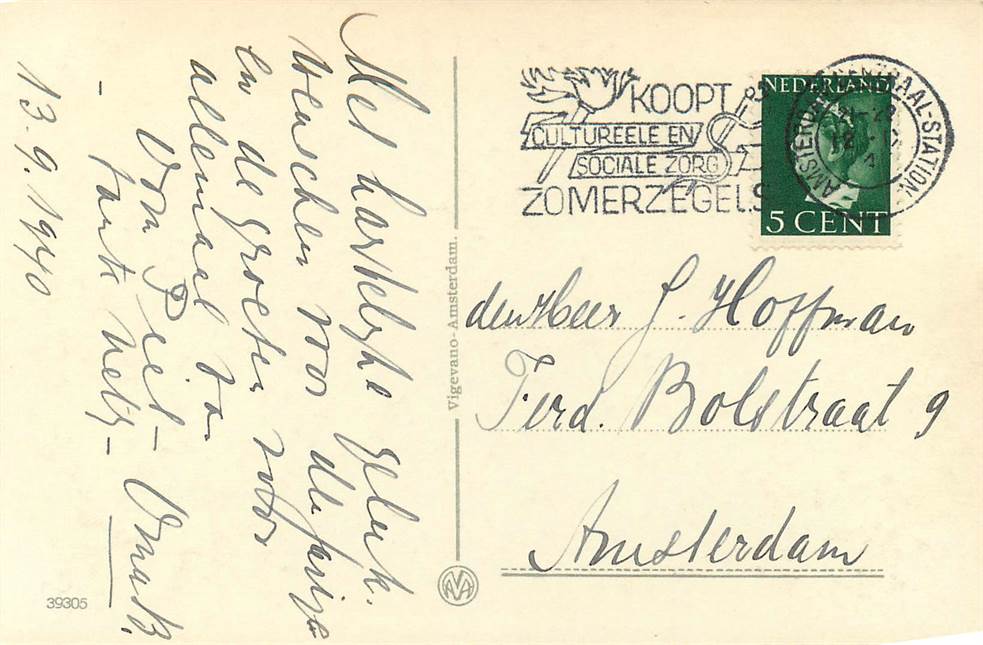 Met hartelijke geluk.
wenschen voor dle
en de groeten voor
allemaal van
Van Piet
- Tante Nelly -
13.9.1940
Vigevano-Amsterdam.
39305
KOOPT
CULTUREELE EN
SOCIALE ZORG
ZOMERZEGELS
AMSTERDAM CENTRAAL-STATION
NEDERLAND
5 CENT
den Heer J. Hoffman
Ferd. Bolstraat 9
Amsterdam